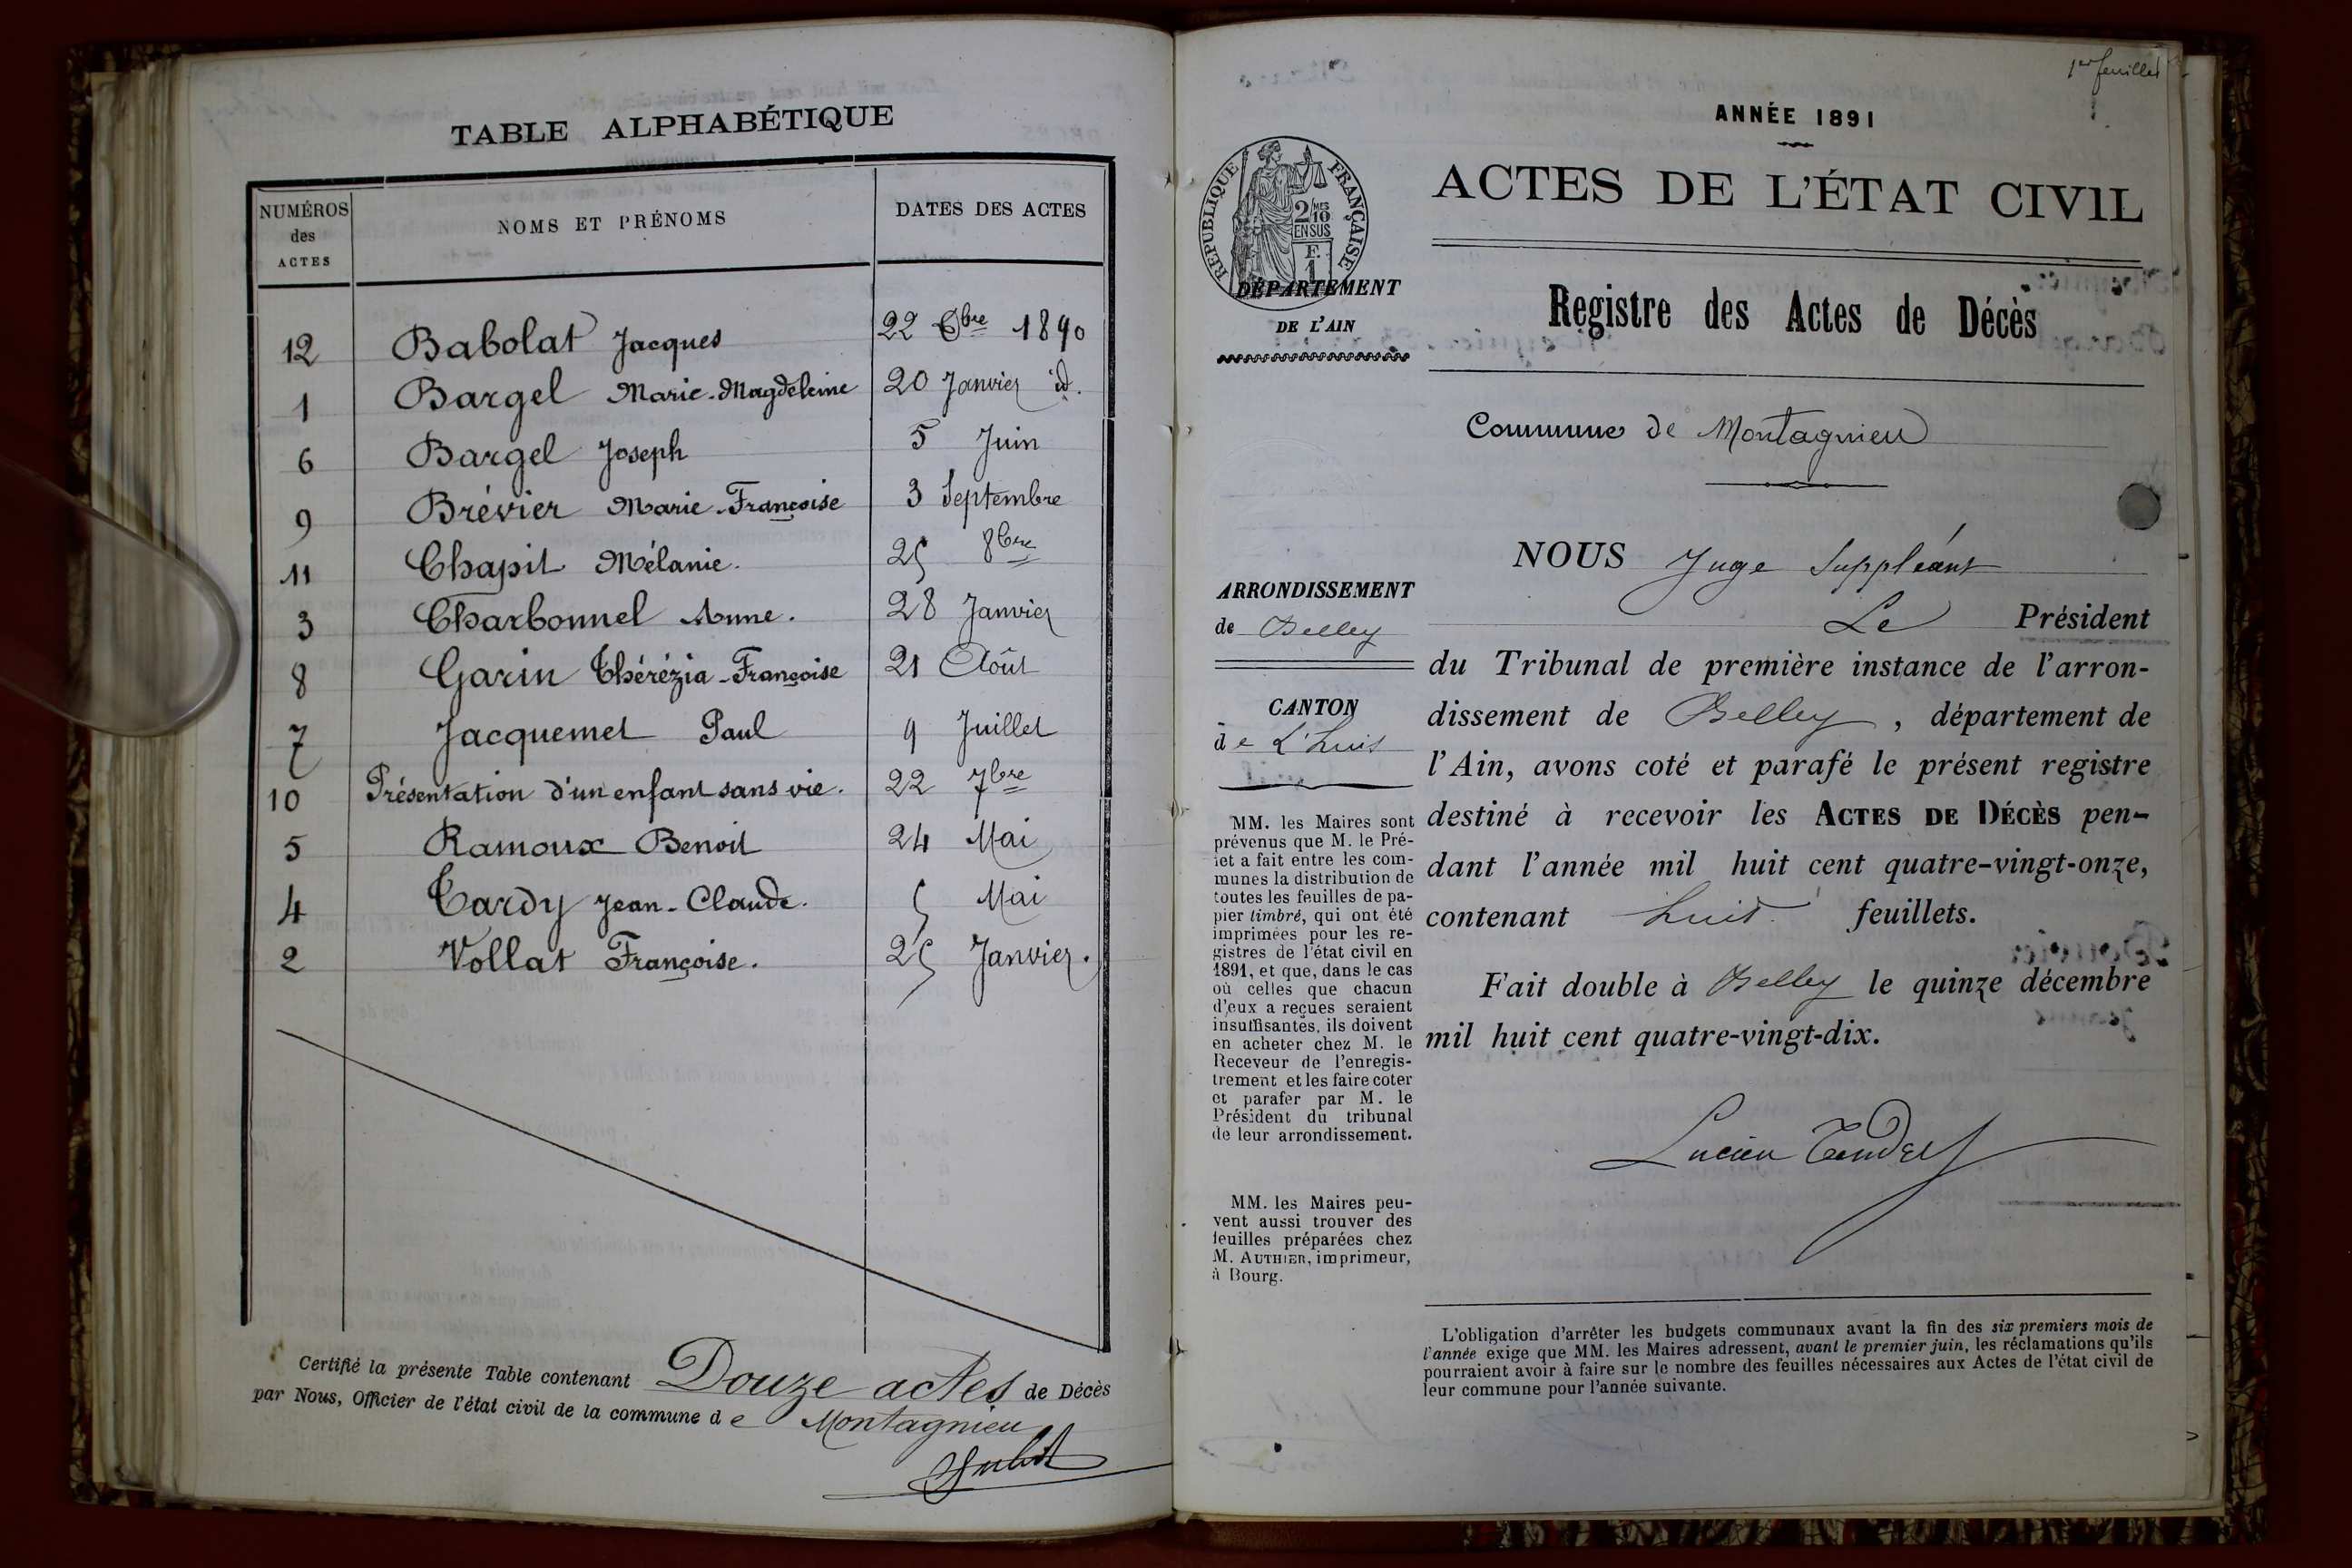 TABLE ALPHABÉTIQUE
NUMÉROS des ACTES | NOMS ET PRÉNOMS | DATES DES ACTES
12 Babolat Jacques 22 Xbre 1890
1 Bargel Marie-Magdeleine 20 Janvier id.
6 Bargel Joseph 5 Juin
9 Brévier Marie-Françoise 3 Septembre
11 Chapit Mélanie. 25 8bre
3 Charbonnel Anne. 28 Janvier
8 Garin Thérézia-Françoise 21 Août
7 Jacquemet Paul 9 Juillet
10 Présentation d'un enfant sans vie. 22 7bre
5 Ramoux Benoit 24 Mai
4 Tardy Jean-Claude. 5 Mai
2 Vollat Françoise. 25 Janvier.
Certifié la présente Table contenant Douze actes de Décès
par Nous, Officier de l'état civil de la commune de Montagnieu
1er feuillet
ANNÉE 1891
ACTES DE L'ÉTAT CIVIL
RÉPUBLIQUE FRANÇAISE
2/10 MES
EN SUS
F.
1
DÉPARTEMENT
DE L'AIN
Registre des Actes de Décès
Commune de Montagnieu
ARRONDISSEMENT
de Belley
CANTON
de L'huis
MM. les Maires sont
prévenus que M. le Pré-
fet a fait entre les com-
munes la distribution de
toutes les feuilles de pa-
pier timbré, qui ont été
imprimées pour les re-
gistres de l'état civil en
1891, et que, dans le cas
où celles que chacun
d'eux a reçues seraient
insuffisantes, ils doivent
en acheter chez M. le
Receveur de l'enregis-
trement et les faire coter
et parafer par M. le
Président du tribunal
de leur arrondissement.
MM. les Maires peu-
vent aussi trouver des
feuilles préparées chez
M. AUTHIER, imprimeur,
à Bourg.
NOUS Juge Suppléant
Le Président
du Tribunal de première instance de l'arron-
dissement de Belley, département de
l'Ain, avons coté et parafé le présent registre
destiné à recevoir les ACTES DE DÉCÈS pen-
dant l'année mil huit cent quatre-vingt-onze,
contenant huit feuillets.
Fait double à Belley le quinze décembre
mil huit cent quatre-vingt-dix.
Lucien
L'obligation d'arrêter les budgets communaux avant la fin des six premiers mois de
l'année exige que MM. les Maires adressent, avant le premier juin, les réclamations qu'ils
pourraient avoir à faire sur le nombre des feuilles nécessaires aux Actes de l'état civil de
leur commune pour l'année suivante.